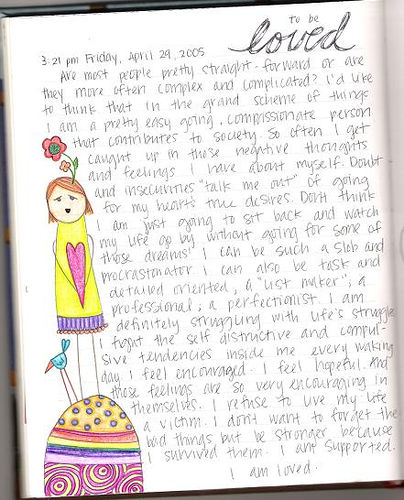 to be
loved
3:21 pm Friday, April 29, 2005
Are most people pretty straight-forward or are
they more often complex and complicated? I'd like
to think that in the grand scheme of things
I am a pretty easy going, compassionate person
that contributes to society. So often I get
caught up in those negative thoughts
and feelings I have about myself. Doubt
and insecurities "talk me out" of going
for my hearts true desires. Don't think
I am just going to sit back and watch
my life go by without going for some of
those dreams! I can be such a slob and
procrastonator. I can also be task and
detailed oriented, a "list maker"; a
professional; a perfectionist. I am
definitely struggling with life's struggles
I fight the self distructive and compul-
sive tendencies inside me every waking
day. I feel encouraged. I feel hopeful. And
those feelings are so very encouraging in
themselves. I refuse to live my life
a victim. I don't want to forget the
bad things but be stronger because
I survived them. I am supported.
I am loved.